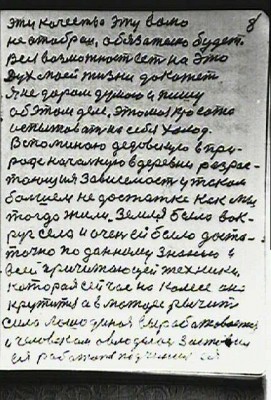 8
эти качества эту само
не отобрал, обязательно будет.
Вся возможност ест на это
Дух моей жизни докажет
Я не даром думаю и пишу
об этом деле, этому я
испытоват на себя холод.
Вспоминаю дедовскую в при-
роде началную в деревни разрас-
тающия Зависемост у таком
болшем не достатке как мы
тогда жили. Земля было вок-
руг села и очен ей было доста-
точно по данному знаню и
всей причитающей техники,
которая сейчас на колесе она
крутится а в моторе рычит
сила лошодиная вырабатовается
и человеком овлодела Заставил
ея работат подченил ей